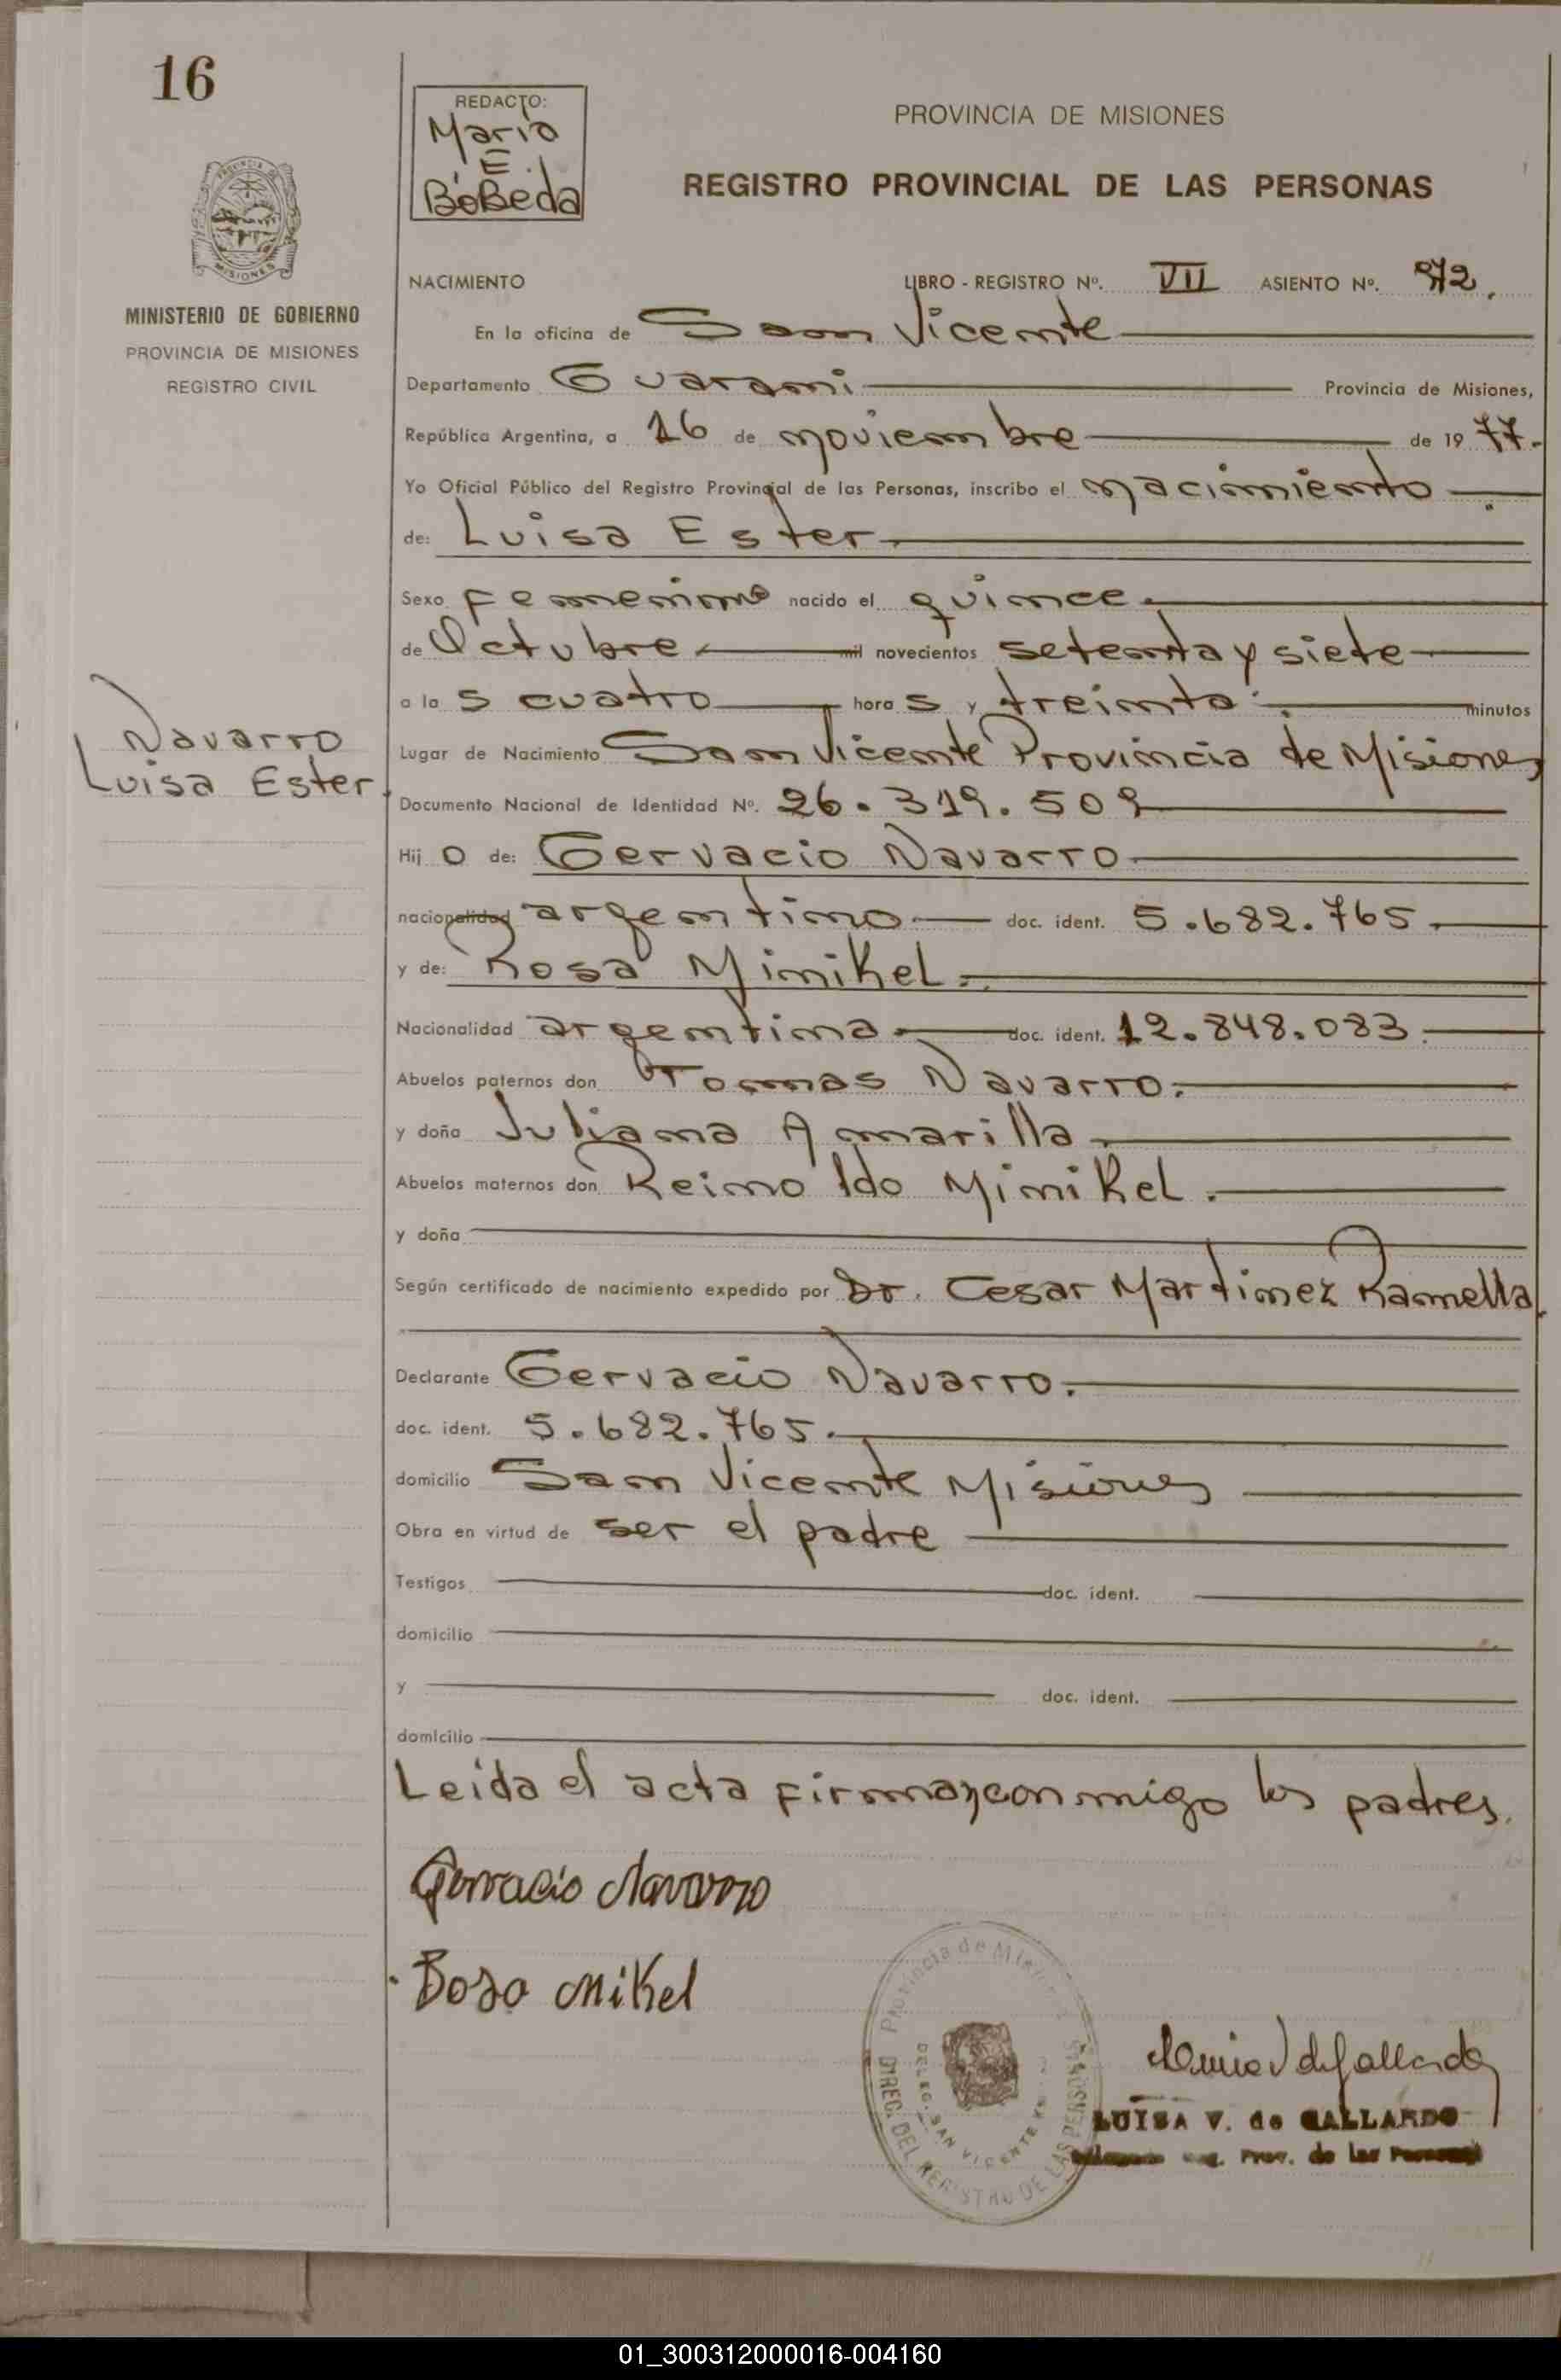 16
REDACTO:
Maria
E.
BoBeda
PROVINCIA DE MISIONES
REGISTRO PROVINCIAL DE LAS PERSONAS
MISIONES
MINISTERIO DE GOBIERNO
PROVINCIA DE MISIONES
REGISTRO CIVIL
NACIMIENTO LIBRO - REGISTRO Nº. VII ASIENTO Nº. 972.
En la oficina de San Vicente
Departamento Guarani Provincia de Misiones,
República Argentina, a 16 de noviembre de 19 77.
Yo Oficial Público del Registro Provincial de las Personas, inscribo el nacimiento
de: Luisa Ester
Sexo femenino nacido el quince
de Octubre mil novecientos setenta y siete
a la s cuatro hora s y treinta minutos
Navarro
Luisa Ester
Lugar de Nacimiento San Vicente Provincia de Misiones
Documento Nacional de Identidad Nº. 26.319.509
Hij o de: Gervacio Navarro
nacionalidad argentino doc. ident. 5.682.765.
y de: Rosa Minikel
Nacionalidad argentina doc. ident. 12.848.083.
Abuelos paternos don Tomas Navarro.
y doña Juliana Amarilla
Abuelos maternos don Reinoldo Minikel.
y doña
Según certificado de nacimiento expedido por Dr. Cesar Martinez Ramella
Declarante Gervacio Navarro.
doc. ident. 5.682.765.
domicilio San Vicente Misiones
Obra en virtud de ser el padre
Testigos doc. ident.
domicilio
y doc. ident.
domicilio
Leida el acta firman conmigo los padres.
Gervacio Navarro
Rosa Mikel
Provincia de
DIREC. DEL REGISTRO DE LAS PERSONAS
DELEG. SAN VICENTE
LUISA V. de GALLARDO
Reg. Prov. de las Personas
01_300312000016-004160